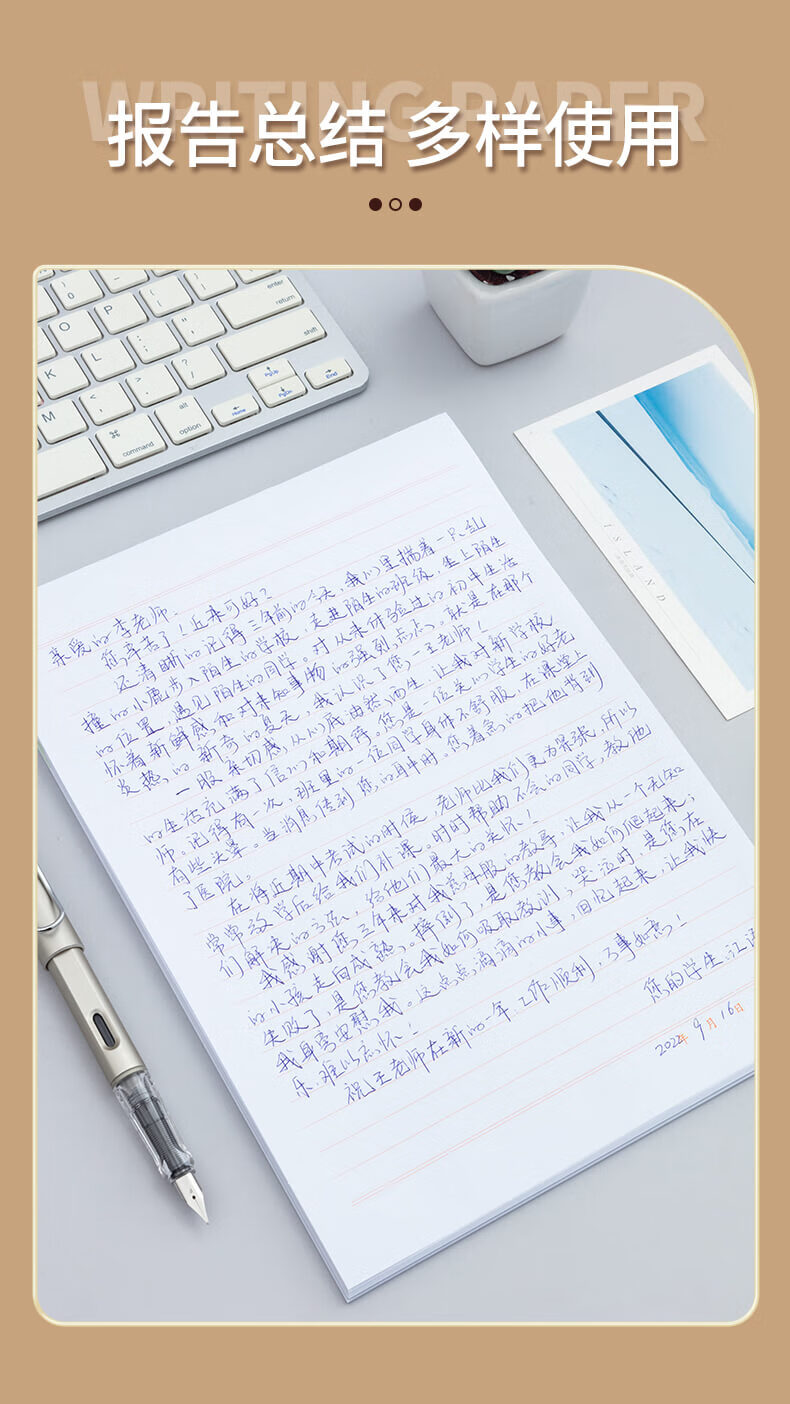 WRITING PAPER
报告总结 多样使用
enter
return
O
P
shift
K
L
M
alt
option
command
Home
PgUp
PgDn
End
ISLAND
亲爱的李老师.
您辛苦了!近来可好?
还清晰的记得三年前的今天,我心里揣着一只乱
撞的小鹿步入陌生的学校,走进陌生的班级,坐上陌生
的位置,遇见陌生的同学。对从未体验过的初中生活
怀着新鲜感和对未知事物的强烈点点。就是在那个
炎热,的新奇的夏天,我认识了您—王老师!
一股亲切感,从心底由然而生,让我对新学校
的生活充满了信心和期待。您是一位关心学生的好老
师,记得有一次,班里的一位同学身体不舒服,在课堂上
有些头晕。当消息传到您的耳中时。您着急的把他背到
了医院。
在将近期中考试的时候,老师比我们更为紧张,所以
常常放学后给我们补课。时时帮助不会的同学,教他
们解决的方法,给他们最大的关怀!
我感谢您三年来对我慈母般的教导,让我从一个无知
的小孩走向成熟。摔倒了,是您教会我如何爬起来;
失败了,是您教会我如何吸取教训,哭泣时,是您,在
我身旁安慰我。这点点滴滴的小事,回忆起来,让我快
乐.难以忘怀!
祝王老师在新的一年.工作顺利,万事如意!
您的学生:江
2022年 9月16日